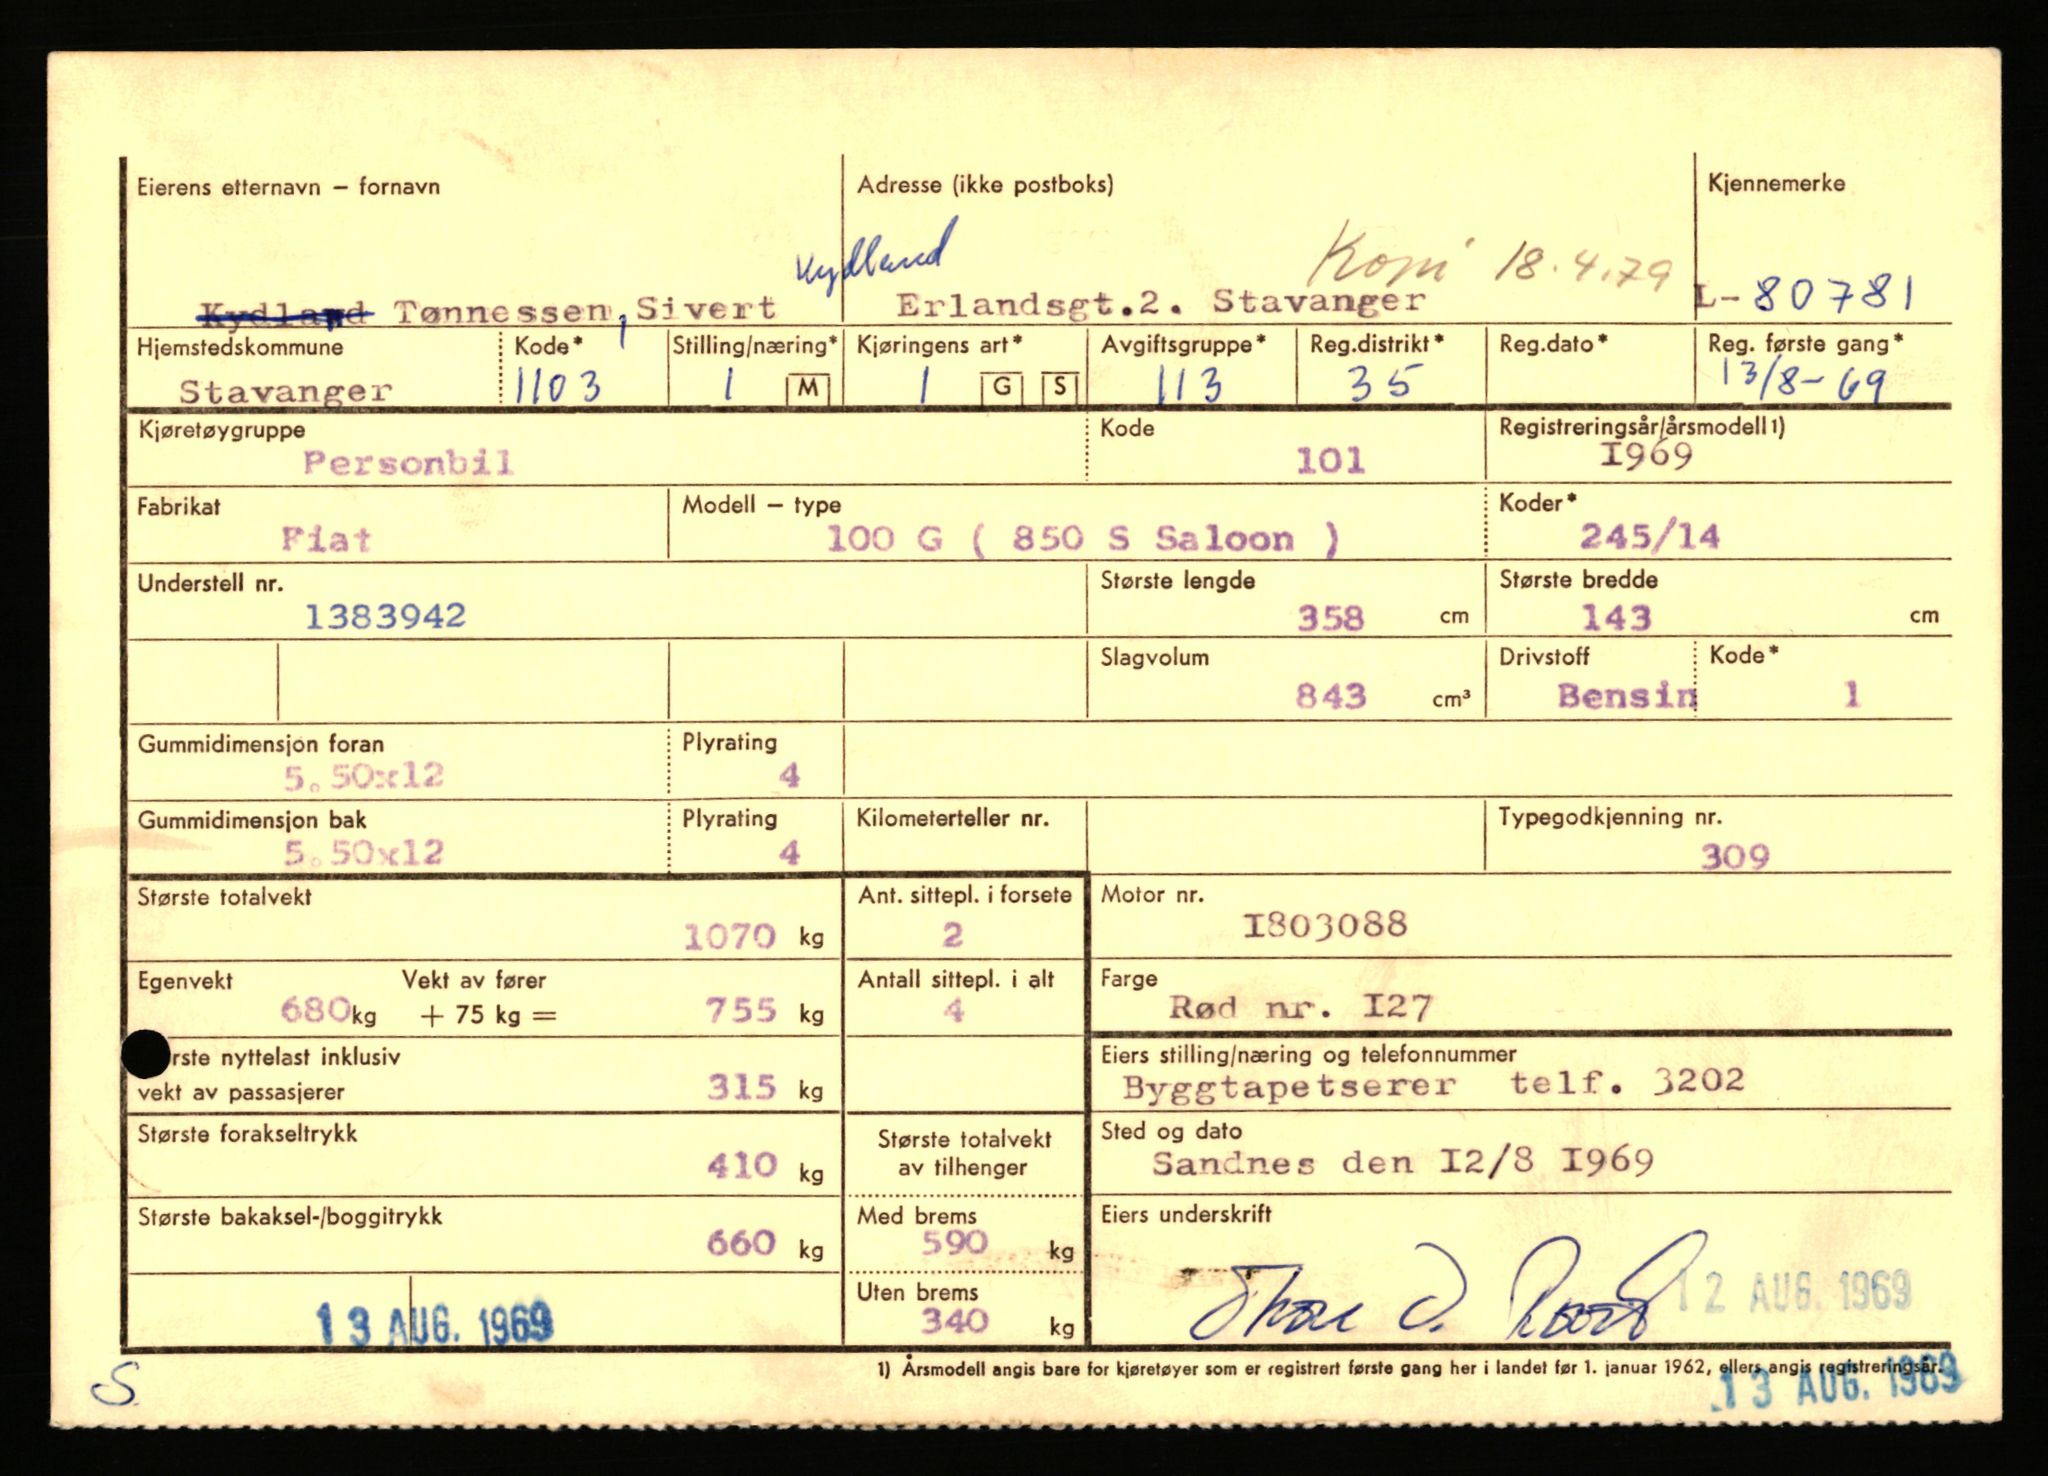 Eierens etternavn – fornavn
Adresse (ikke postboks)
Kjennemerke
Kydland
Kopi 18.4.79
Kydland Tønnessen, Sivert
Erlandsgt.2. Stavanger
L-80781
Hjemstedskommune
Kode*
Stilling/næring*
Kjøringens art*
Avgiftsgruppe*
Reg.distrikt*
Reg.dato*
Reg. første gang*
Stavanger
1103
1 M
1 G S
113
35
13/8-69
Kjøretøygruppe
Kode
Registreringsår/årsmodell 1)
Personbil
101
1969
Fabrikat
Modell – type
Koder*
Fiat
100 G ( 850 S Saloon )
245/14
Understell nr.
Største lengde
Største bredde
1383942
358 cm
143 cm
Slagvolum
Drivstoff
Kode*
843 cm³
Bensin
1
Gummidimensjon foran
Plyrating
5.50x12
4
Gummidimensjon bak
Plyrating
Kilometerteller nr.
Typegodkjenning nr.
5.50x12
4
309
Største totalvekt
Ant. sittepl. i forsete
Motor nr.
1070 kg
2
I803088
Egenvekt
Vekt av fører
Antall sittepl. i alt
Farge
680 kg + 75 kg = 755 kg
4
Rød nr. I27
rste nyttelast inklusiv
vekt av passasjerer
315 kg
Eiers stilling/næring og telefonnummer
Byggtapetserer telf. 3202
Største forakseltrykk
410 kg
Største totalvekt
av tilhenger
Sted og dato
Sandnes den I2/8 I969
Største bakaksel-/boggitrykk
660 kg
Med brems
590 kg
Eiers underskrift
12 AUG. 1969
Uten brems
340 kg
13 AUG. 1969
1) Årsmodell angis bare for kjøretøyer som er registrert første gang her i landet før 1. januar 1962, ellers angis registreringsår.
13 AUG. 1969
S.